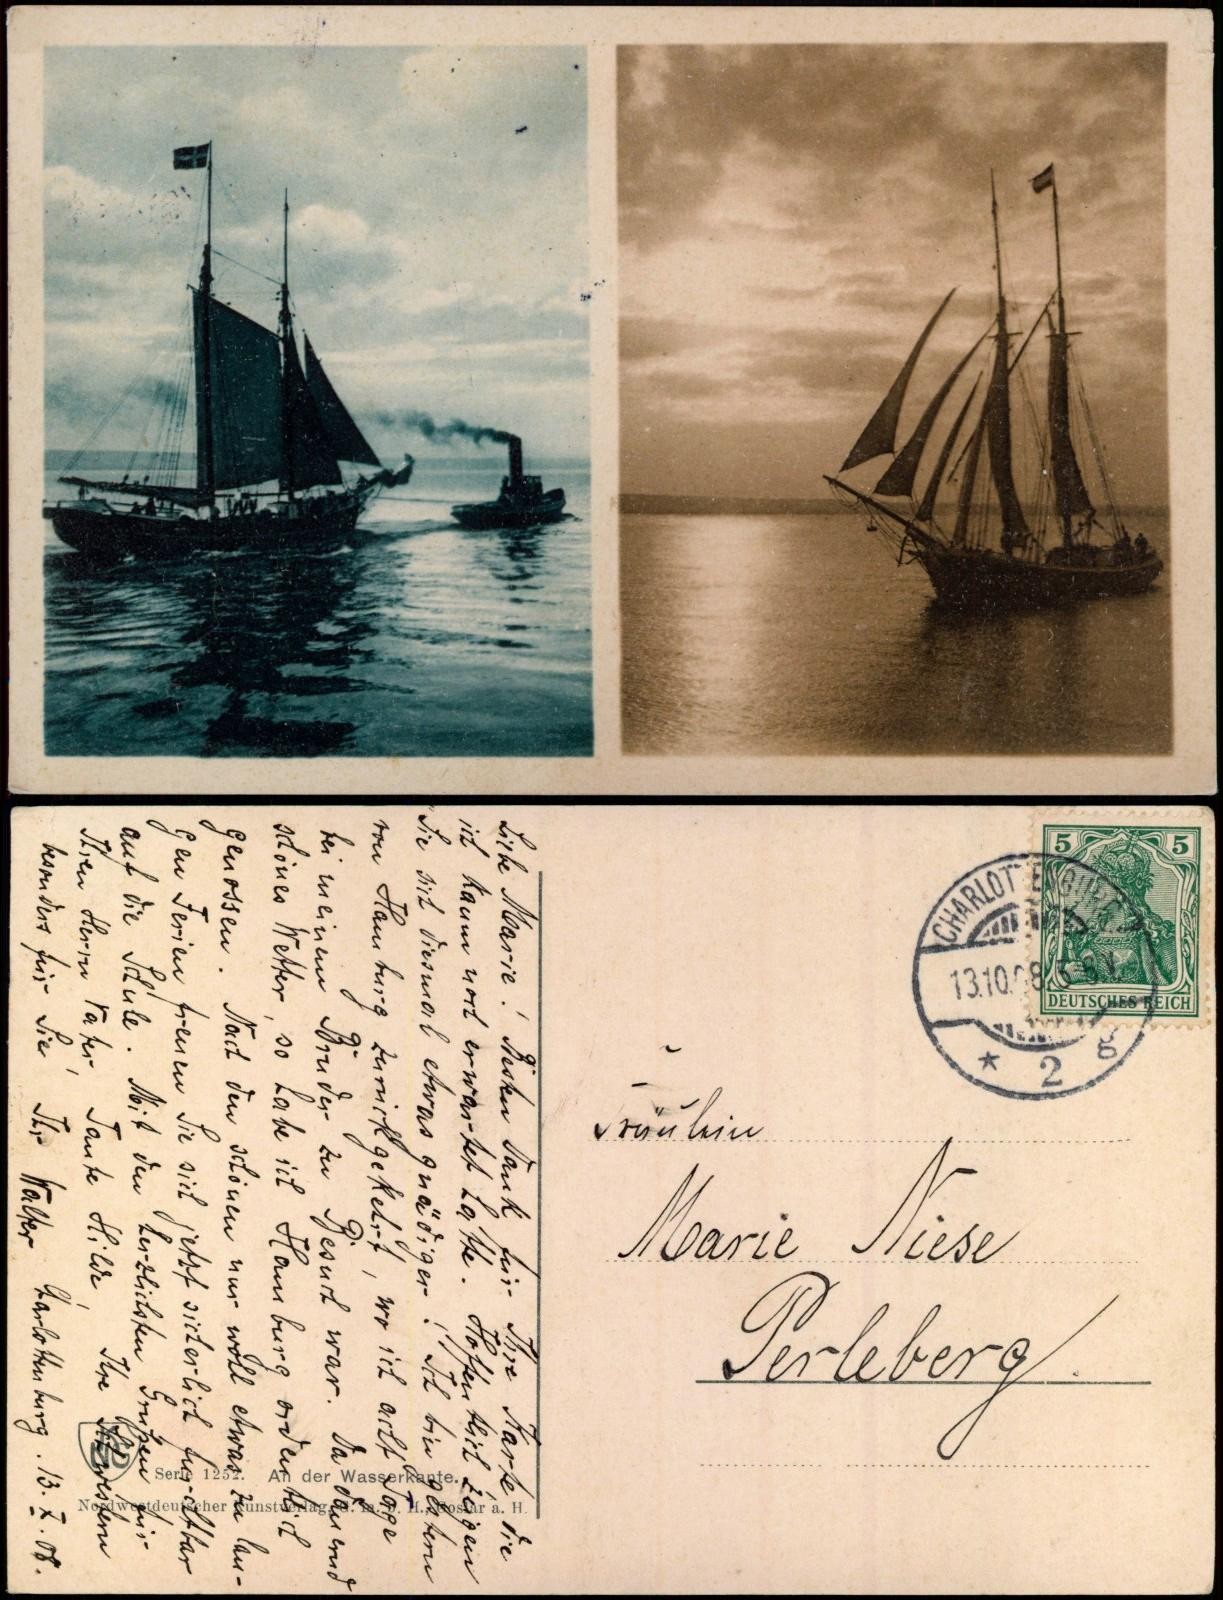 Liebe Marie! Besten Dank für Ihre Karte die
ich kaum noch erwartet hatte. Hoffentlich zeigen
Sie sich diesmal etwas gnädiger! Ich bin gestern
von Hamburg zurückgekehrt, wo ich acht Tage
bei meinem Bruder zu Besuch war. Da dauernd
schönes Wetter, so habe ich Hamburg ordentlich
genossen. Nach den schönen nur wohl etwas zu lan-
gen Ferien freuen Sie sich jetzt sicherlich furchtbar
auf die Schule. Mit den herzlichsten Grüßen für
Ihren Herrn Vater, Tante Hilde, Ihre Schwestern
besonders für Sie, Ihr Walter
Charlottenburg. 13. X. 08.
Serie 1252. An der Wasserkante.
Nordwestdeutscher Kunstverlag, G. m. b. H., Goslar a. H.
5 5
DEUTSCHES REICH
CHARLOTTENBURG
13.10.08
* 2 g
Fräulein
Marie Niese
Perleberg.